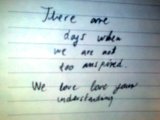 There are
days when
we are not
too inspired.
We love love your
understanding